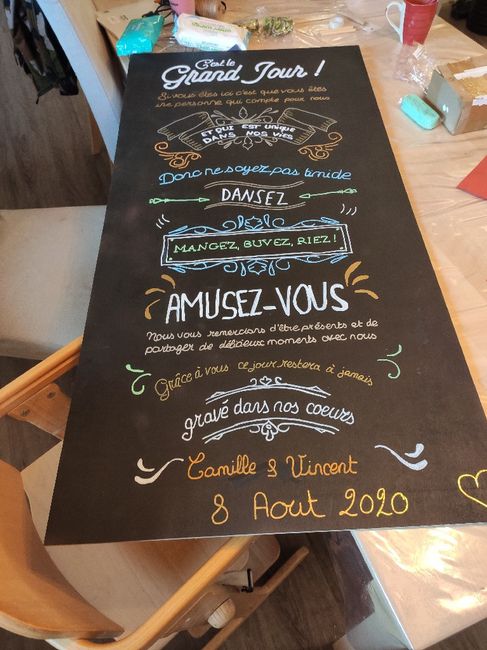 C'est le
Grand Jour !
Si vous êtes ici c'est que vous êtes
une personne qui compte pour nous
ET QUI EST UNIQUE
DANS NOS VIES
Donc ne soyez pas timide
DANSEZ
MANGEZ, BUVEZ, RIEZ !
AMUSEZ-VOUS
Nous vous remercions d'être présents et de
partager de délicieux moments avec nous
Grâce à vous ce jour restera à jamais
gravé dans nos coeurs
Camille & Vincent
8 Aout 2020